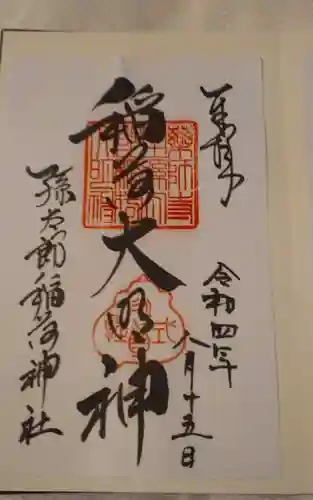 奉拝
令和四年
八月十五日
稲荷大明神
孫太郎稲荷神社